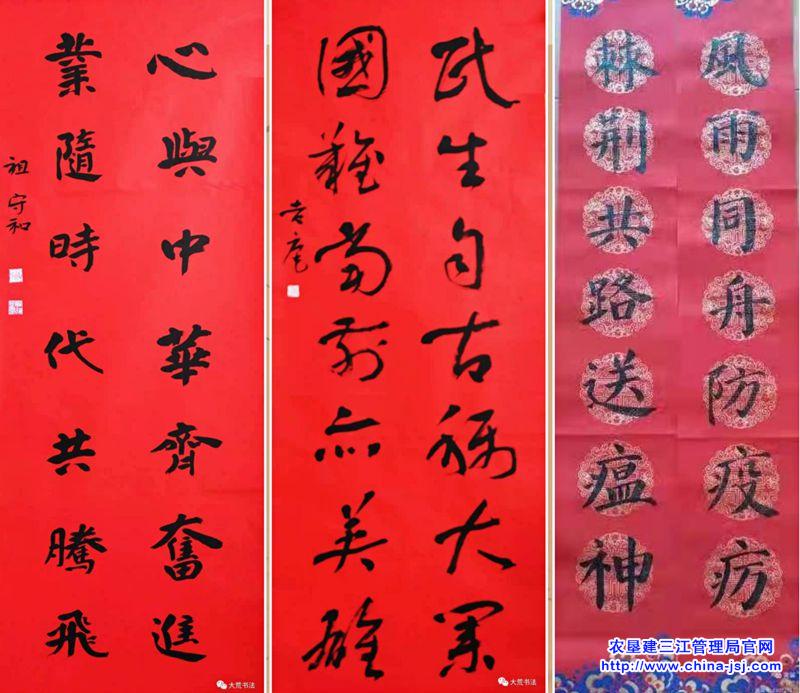 心與中華齊奮進
業隨時代共騰飛
祖守和
民生自古稱大
國難當前亦
風雨同舟防疫疠
荊共路送瘟神
大荒书法
大荒书法
农垦建三江管理局官网
http://www.china-jsj.com/